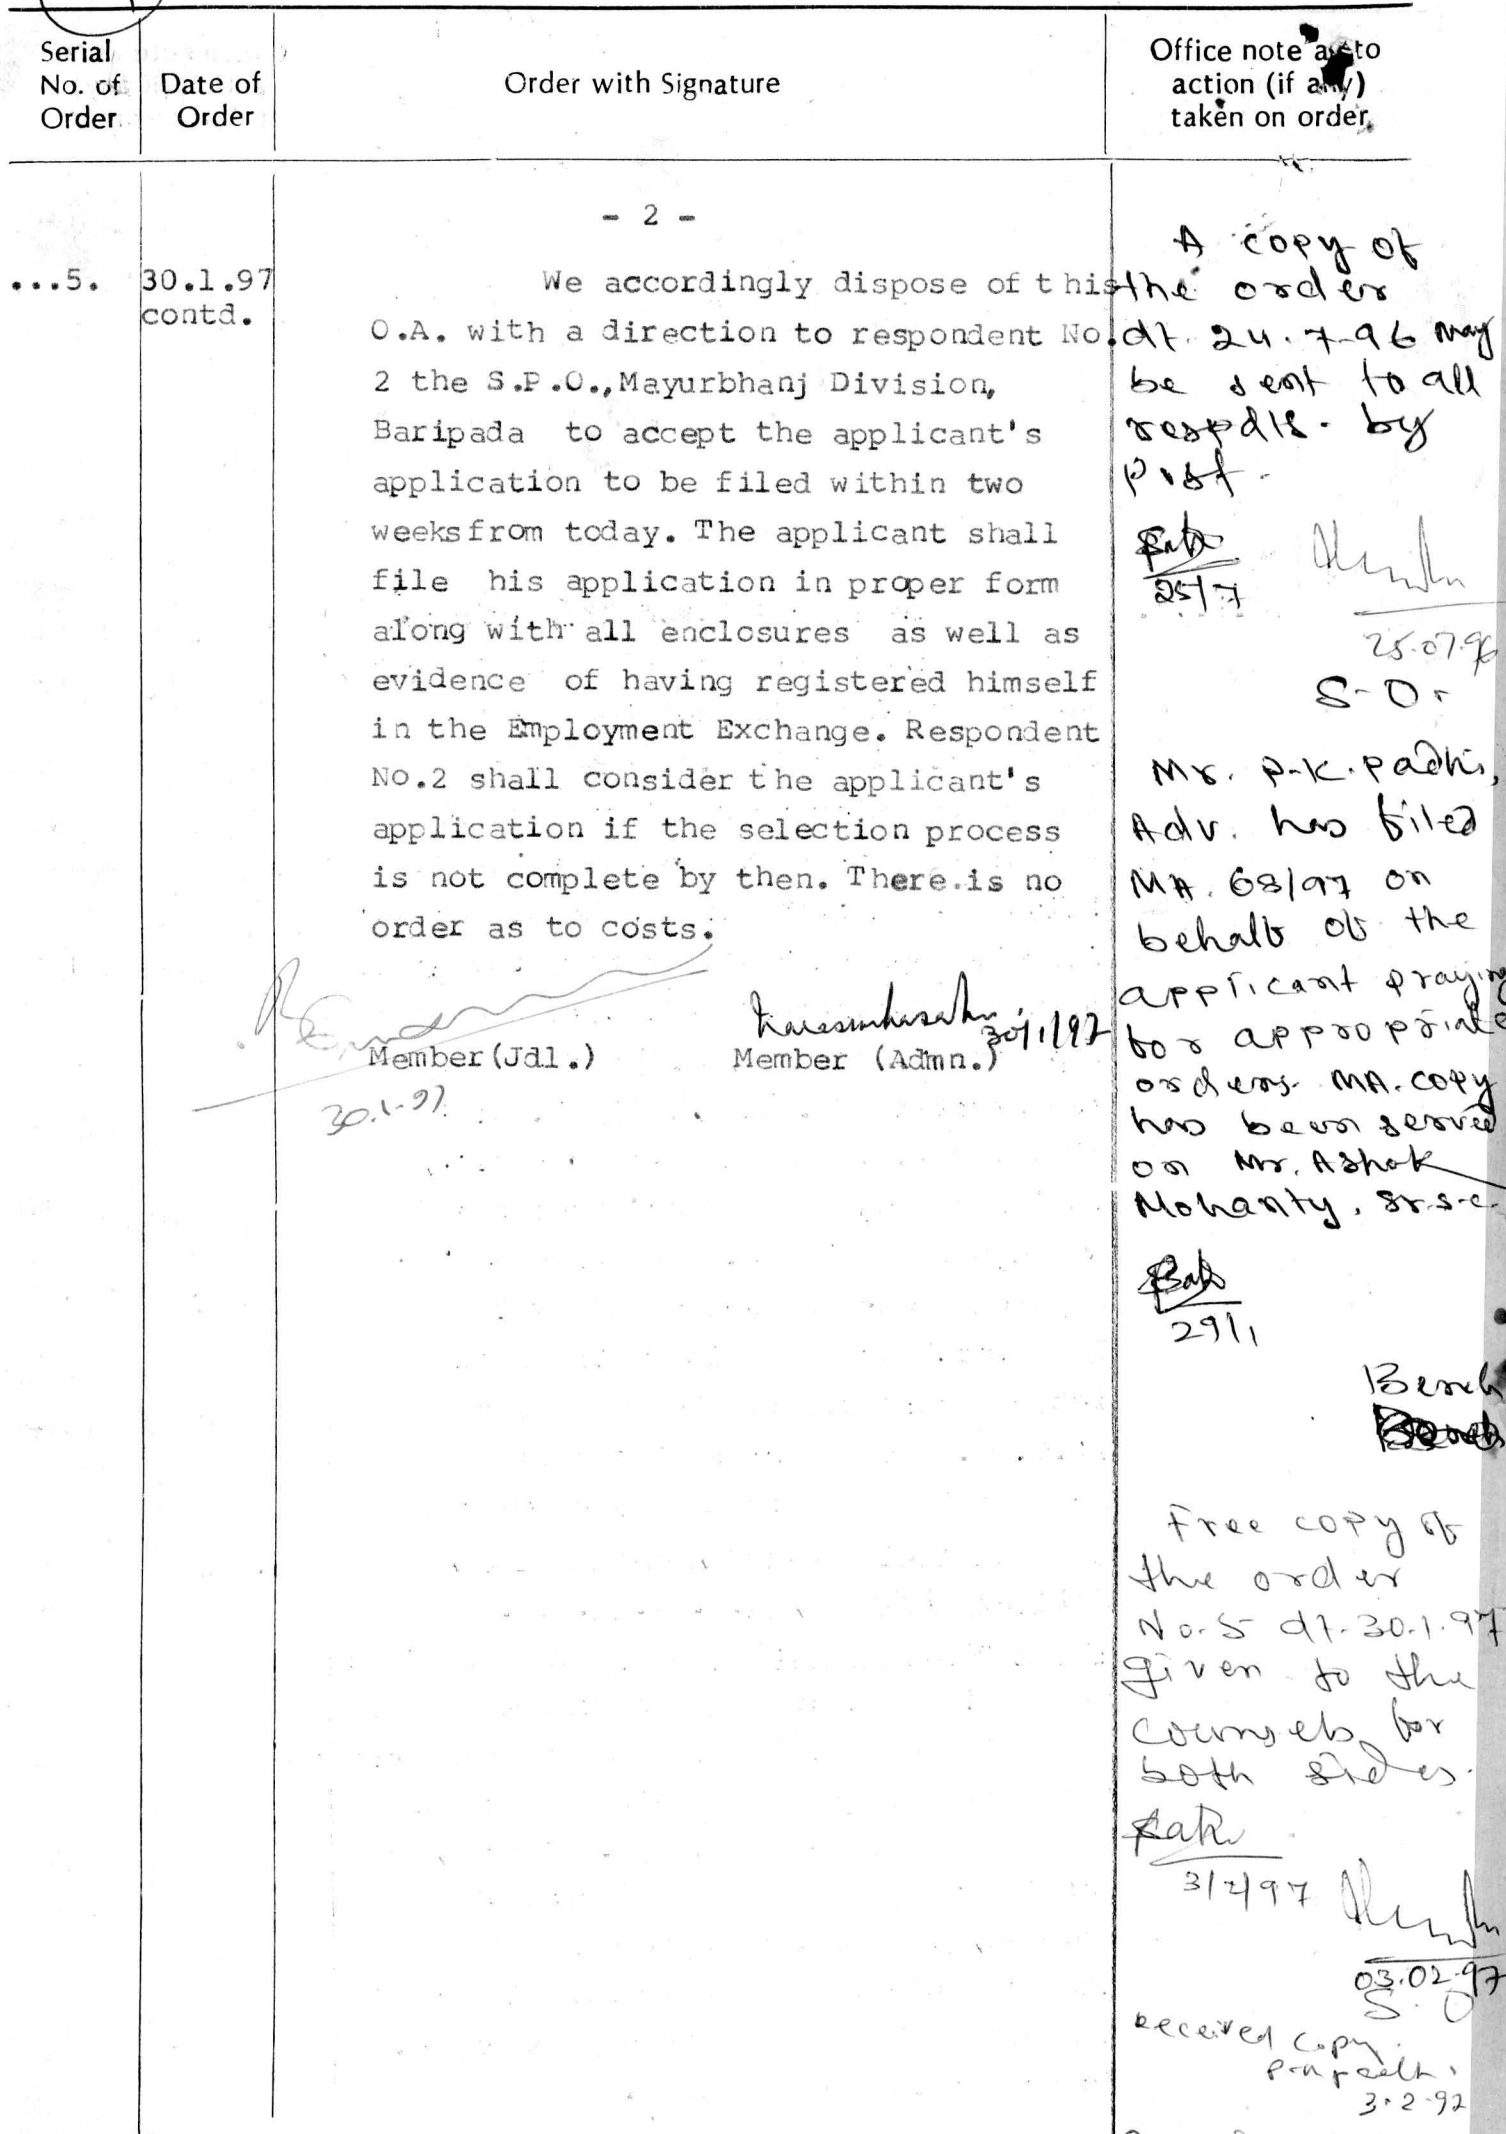 Serial
No. of
Order
Date of
Order
Order with Signature
Office note as to
action (if any)
taken on order
- 2 -
...5.
30.1.97
contd.
We accordingly dispose of this
O.A. with a direction to respondent No.
2 the S.P.O., Mayurbhanj Division,
Baripada to accept the applicant's
application to be filed within two
weeks from today. The applicant shall
file his application in proper form
along with all enclosures as well as
evidence of having registered himself
in the Employment Exchange. Respondent
No.2 shall consider the applicant's
application if the selection process
is not complete by then. There is no
order as to costs.
30/1/97
Member (Jdl.)
Member (Admn.)
30.1.97
A copy of
the order
dt. 24.7.96 may
be sent to all
respdts. by
post.
25/7
25.07.96
S.O.
Mr. P.K. Padhi,
Adv. has filed
MA. 68/97 on
behalf of the
applicant praying
for appropriate
orders. MA. copy
has been served
on Mr. Ashok
Mohanty, Sr.S.C.
29/1
Bench
Free copy of
the order
No.5 dt. 30.1.97
given to the
counsels for
both sides.
3/2/97
03.02.97
S.O
Received copy.
3.2.97